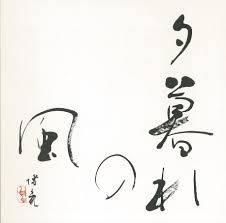 夕暮れ
の
風